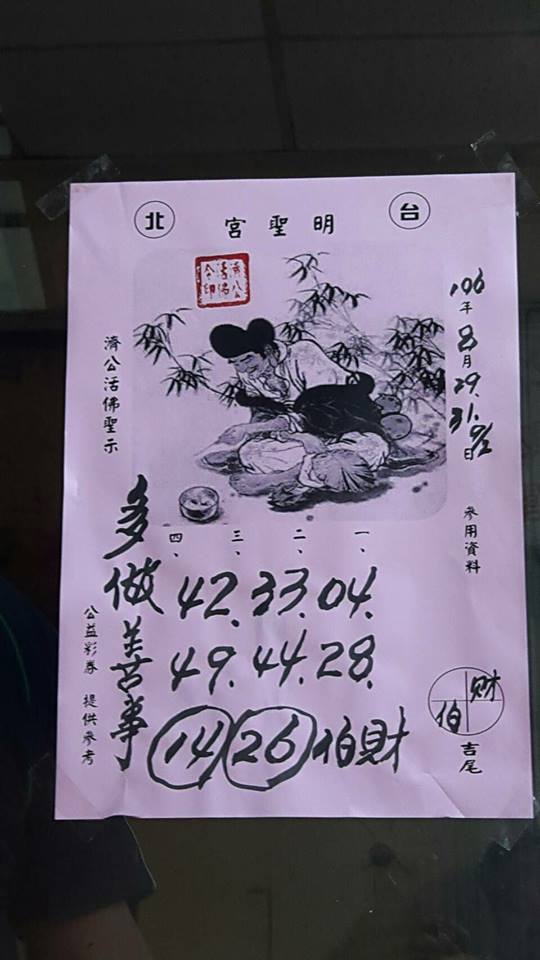 台北
明聖宮
濟公活佛令印
106年8月29.31.9/2日
參用資料
濟公活佛聖示
一、二、三、四、
42.33.04.
49.44.28.
14 26 伯財
多做善事
公益彩券 提供參考
財
伯
吉尾